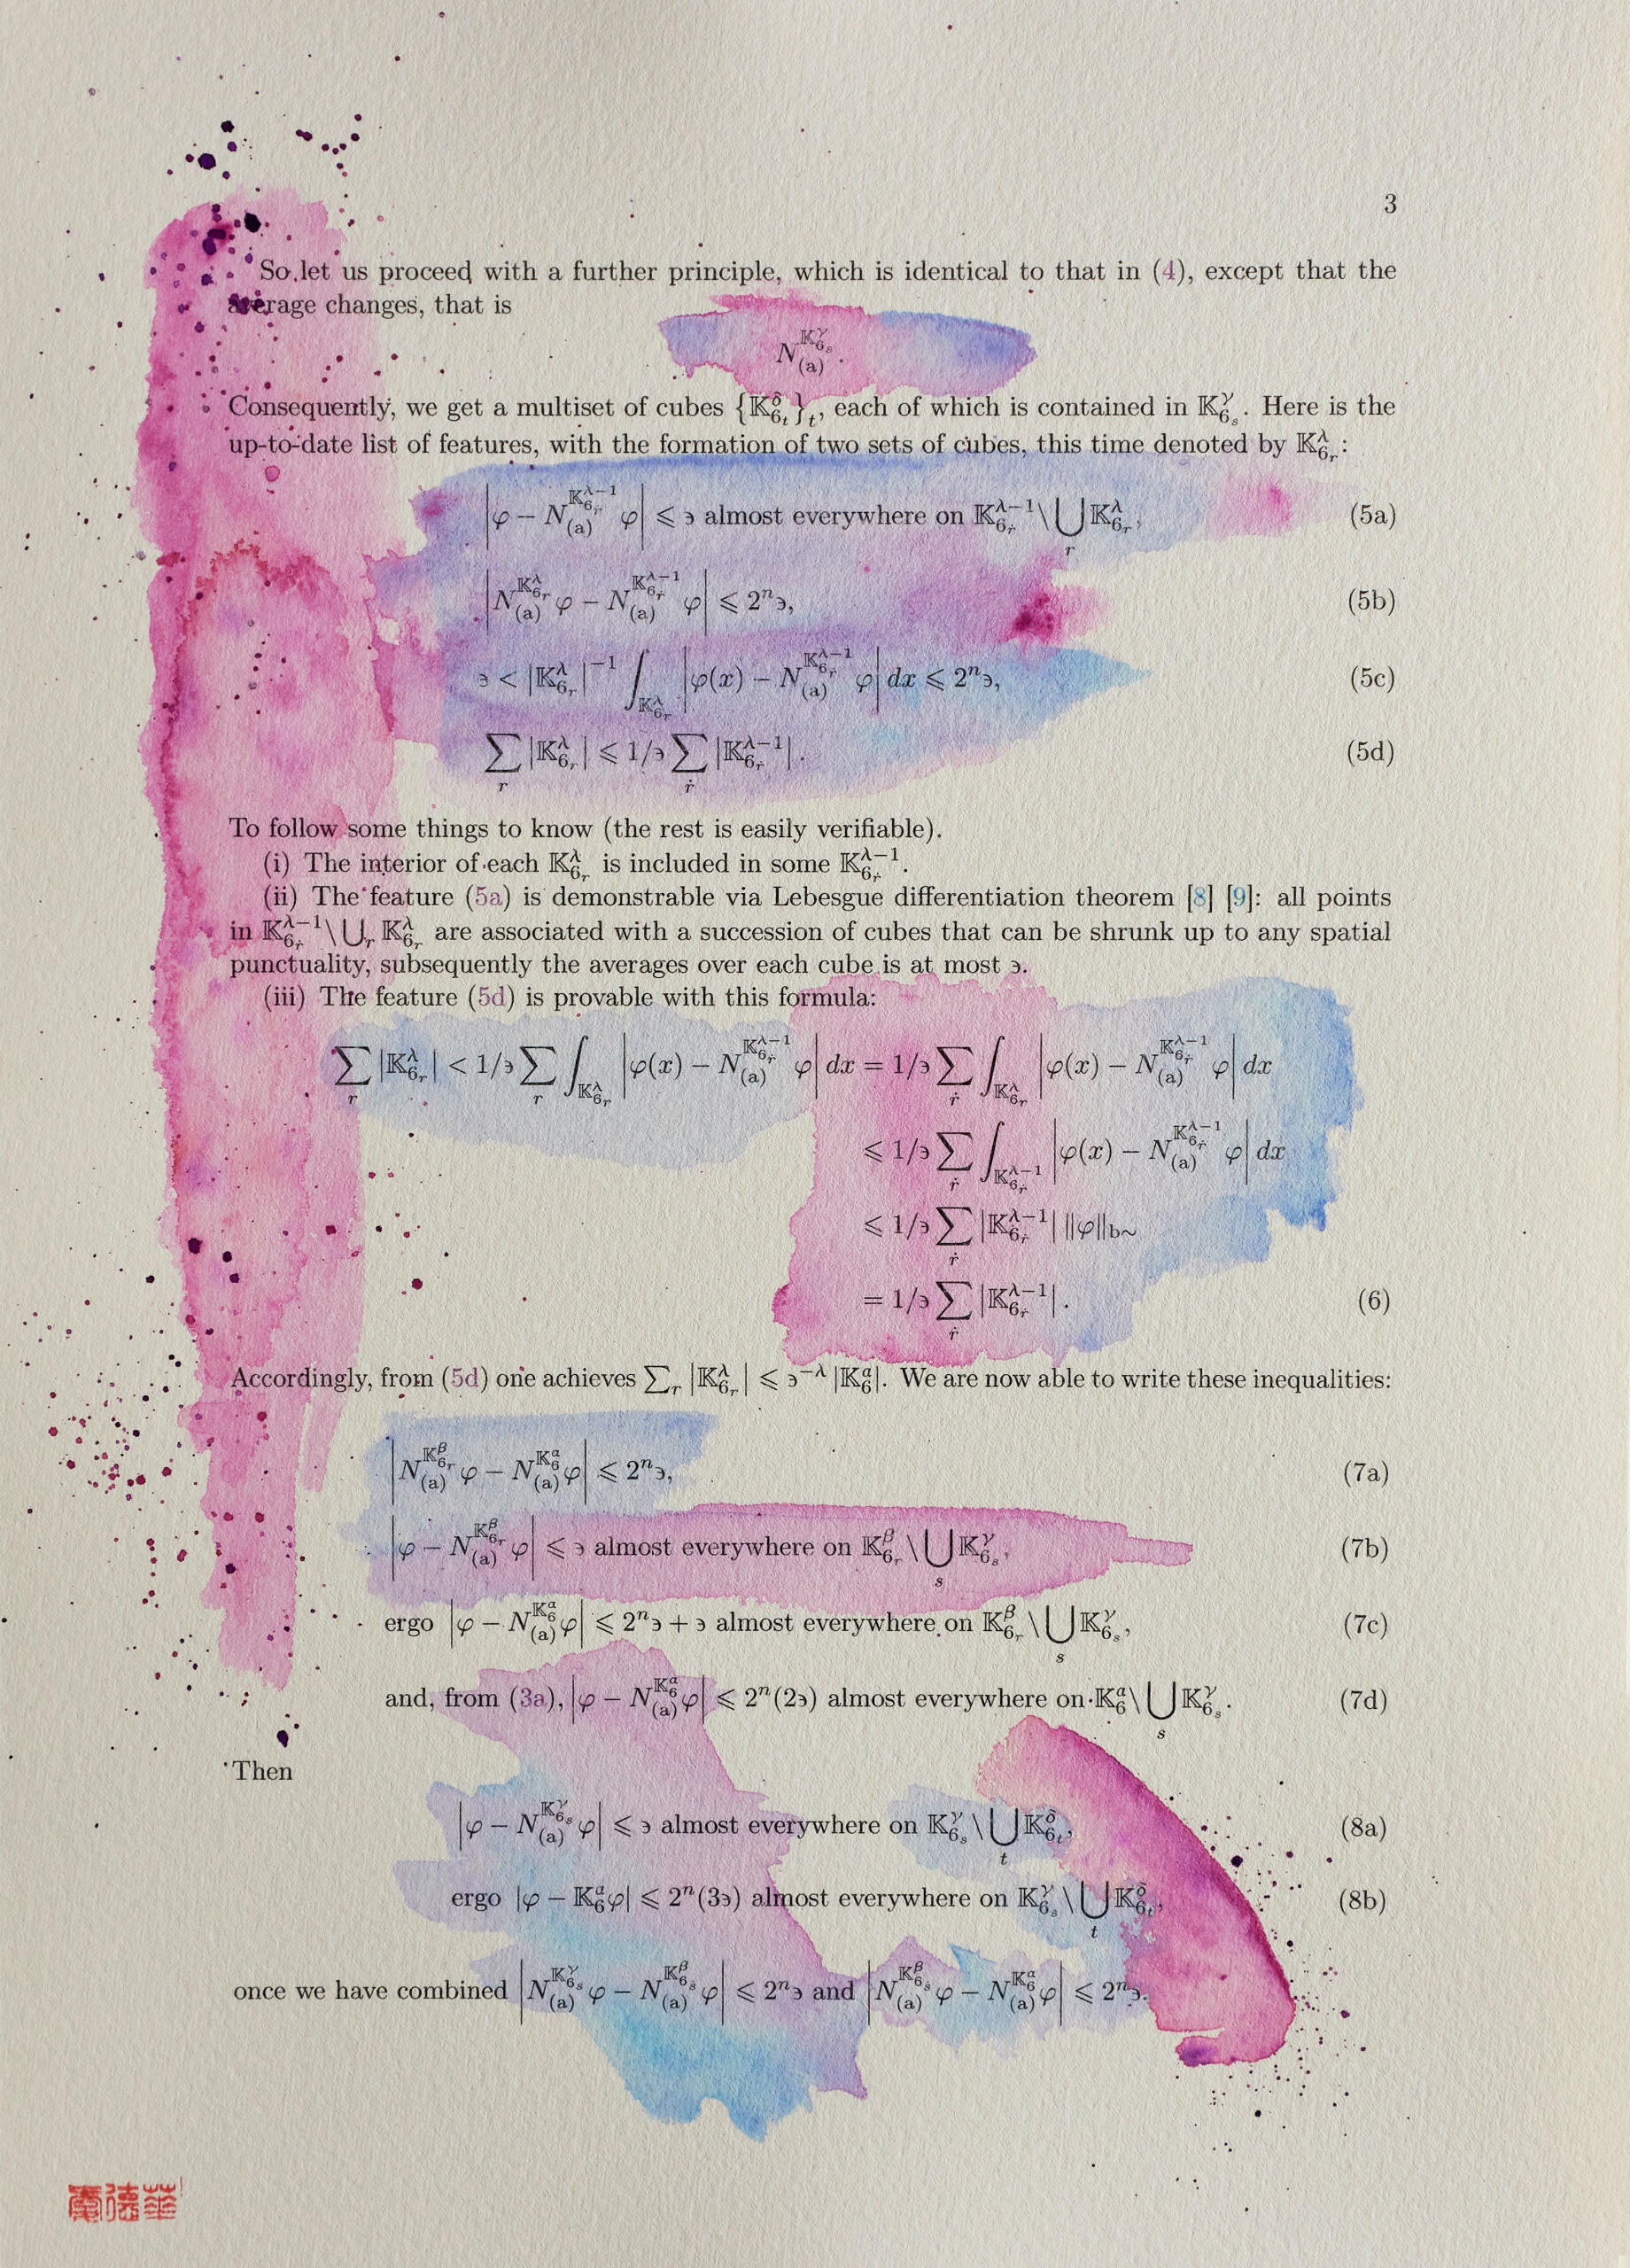 3
So let us proceed with a further principle, which is identical to that in (4), except that the
average changes, that is
$N_{(\mathrm{a})}^{\mathbb{K}_{6_s}^{\gamma}}.$
Consequently, we get a multiset of cubes $\{\mathbb{K}_{6_t}^{\delta}\}_t$, each of which is contained in $\mathbb{K}_{6_s}^{\gamma}$. Here is the
up-to-date list of features, with the formation of two sets of cubes, this time denoted by $\mathbb{K}_{6_r}^{\lambda}$:
$\left|\varphi - N_{(\mathrm{a})}^{\mathbb{K}_{6_{\dot r}}^{\lambda-1}}\varphi\right| \leqslant ɘ$ almost everywhere on $\mathbb{K}_{6_{\dot r}}^{\lambda-1} \backslash \bigcup_r \mathbb{K}_{6_r}^{\lambda},$ (5a)
$\left|N_{(\mathrm{a})}^{\mathbb{K}_{6_r}^{\lambda}}\varphi - N_{(\mathrm{a})}^{\mathbb{K}_{6_{\dot r}}^{\lambda-1}}\varphi\right| \leqslant 2^n ɘ,$ (5b)
$ɘ < |\mathbb{K}_{6_r}^{\lambda}|^{-1} \int_{\mathbb{K}_{6_r}^{\lambda}} \left|\varphi(x) - N_{(\mathrm{a})}^{\mathbb{K}_{6_{\dot r}}^{\lambda-1}}\varphi\right| dx \leqslant 2^n ɘ,$ (5c)
$\sum_r |\mathbb{K}_{6_r}^{\lambda}| \leqslant 1/ɘ \sum_{\dot r} |\mathbb{K}_{6_{\dot r}}^{\lambda-1}|.$ (5d)
To follow some things to know (the rest is easily verifiable).
(i) The interior of each $\mathbb{K}_{6_r}^{\lambda}$ is included in some $\mathbb{K}_{6_{\dot r}}^{\lambda-1}$.
(ii) The feature (5a) is demonstrable via Lebesgue differentiation theorem [8] [9]: all points
in $\mathbb{K}_{6_{\dot r}}^{\lambda-1} \backslash \bigcup_r \mathbb{K}_{6_r}^{\lambda}$ are associated with a succession of cubes that can be shrunk up to any spatial
punctuality, subsequently the averages over each cube is at most ɘ.
(iii) The feature (5d) is provable with this formula:
$\sum_r |\mathbb{K}_{6_r}^{\lambda}| < 1/ɘ \sum_r \int_{\mathbb{K}_{6_r}^{\lambda}} \left|\varphi(x) - N_{(\mathrm{a})}^{\mathbb{K}_{6_{\dot r}}^{\lambda-1}}\varphi\right| dx = 1/ɘ \sum_{\dot r} \int_{\mathbb{K}_{6_r}^{\lambda}} \left|\varphi(x) - N_{(\mathrm{a})}^{\mathbb{K}_{6_{\dot r}}^{\lambda-1}}\varphi\right| dx$
$\leqslant 1/ɘ \sum_{\dot r} \int_{\mathbb{K}_{6_{\dot r}}^{\lambda-1}} \left|\varphi(x) - N_{(\mathrm{a})}^{\mathbb{K}_{6_{\dot r}}^{\lambda-1}}\varphi\right| dx$
$\leqslant 1/ɘ \sum_{\dot r} |\mathbb{K}_{6_{\dot r}}^{\lambda-1}| \, \|\varphi\|_{\mathrm{b}\sim}$
$= 1/ɘ \sum_{\dot r} |\mathbb{K}_{6_{\dot r}}^{\lambda-1}|.$ (6)
Accordingly, from (5d) one achieves $\sum_r |\mathbb{K}_{6_r}^{\lambda}| \leqslant ɘ^{-\lambda} |\mathbb{K}_6^{\alpha}|$. We are now able to write these inequalities:
$\left|N_{(\mathrm{a})}^{\mathbb{K}_{6_r}^{\beta}}\varphi - N_{(\mathrm{a})}^{\mathbb{K}_6^{\alpha}}\varphi\right| \leqslant 2^n ɘ,$ (7a)
$\left|\varphi - N_{(\mathrm{a})}^{\mathbb{K}_{6_r}^{\beta}}\varphi\right| \leqslant ɘ$ almost everywhere on $\mathbb{K}_{6_r}^{\beta} \backslash \bigcup_s \mathbb{K}_{6_s}^{\gamma},$ (7b)
ergo $\left|\varphi - N_{(\mathrm{a})}^{\mathbb{K}_6^{\alpha}}\varphi\right| \leqslant 2^n ɘ + ɘ$ almost everywhere on $\mathbb{K}_{6_r}^{\beta} \backslash \bigcup_s \mathbb{K}_{6_s}^{\gamma},$ (7c)
and, from (3a), $\left|\varphi - N_{(\mathrm{a})}^{\mathbb{K}_6^{\alpha}}\varphi\right| \leqslant 2^n(2ɘ)$ almost everywhere on $\mathbb{K}_6^{\alpha} \backslash \bigcup_s \mathbb{K}_{6_s}^{\gamma}.$ (7d)
Then
$\left|\varphi - N_{(\mathrm{a})}^{\mathbb{K}_{6_s}^{\gamma}}\varphi\right| \leqslant ɘ$ almost everywhere on $\mathbb{K}_{6_s}^{\gamma} \backslash \bigcup_t \mathbb{K}_{6_t}^{\delta},$ (8a)
ergo $|\varphi - \mathbb{K}_6^{\alpha}\varphi| \leqslant 2^n(3ɘ)$ almost everywhere on $\mathbb{K}_{6_s}^{\gamma} \backslash \bigcup_t \mathbb{K}_{6_t}^{\delta},$ (8b)
once we have combined $\left|N_{(\mathrm{a})}^{\mathbb{K}_{6_s}^{\gamma}}\varphi - N_{(\mathrm{a})}^{\mathbb{K}_{6_s}^{\beta}}\varphi\right| \leqslant 2^n ɘ$ and $\left|N_{(\mathrm{a})}^{\mathbb{K}_{6_s}^{\beta}}\varphi - N_{(\mathrm{a})}^{\mathbb{K}_6^{\alpha}}\varphi\right| \leqslant 2^n ɘ.$